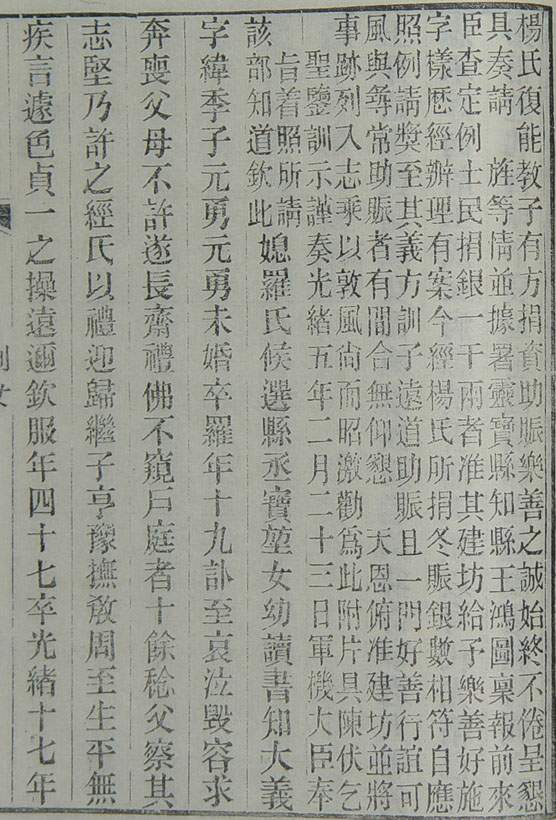 楊氏復能教子有方捐資助賑樂善之誠始終不倦呈懇
具奏請 旌等情並據署靈寶縣知縣王鴻圖稟報前來
臣查定例士民捐銀一千兩者准其建坊給予樂善好施
字樣歷經辦理有案今經楊氏所捐冬賑銀數相符自應
照例請獎至其義方訓子遠道助賑且一門好善行誼可
風與尋常助賑者有間合無仰懇 天恩俯准建坊並將
事跡列入志乘以敦風尚而昭激勸爲此附片具陳伏乞
聖鑒訓示謹奏光緒五年二月二十三日軍機大臣奉
旨着照所請
該部知道欽此媳羅氏候選縣丞寶堃女幼讀書知大義
字緯季子元勇元勇未婚卒羅年十九訃至哀泣毀容求
奔喪父母不許遂長齋禮佛不窺戶庭者十餘稔父察其
志堅乃許之經氏以禮迎歸繼子亨豫撫敎周至生平無
疾言遽色貞一之操遠邇欽服年四十七卒光緒十七年
列女